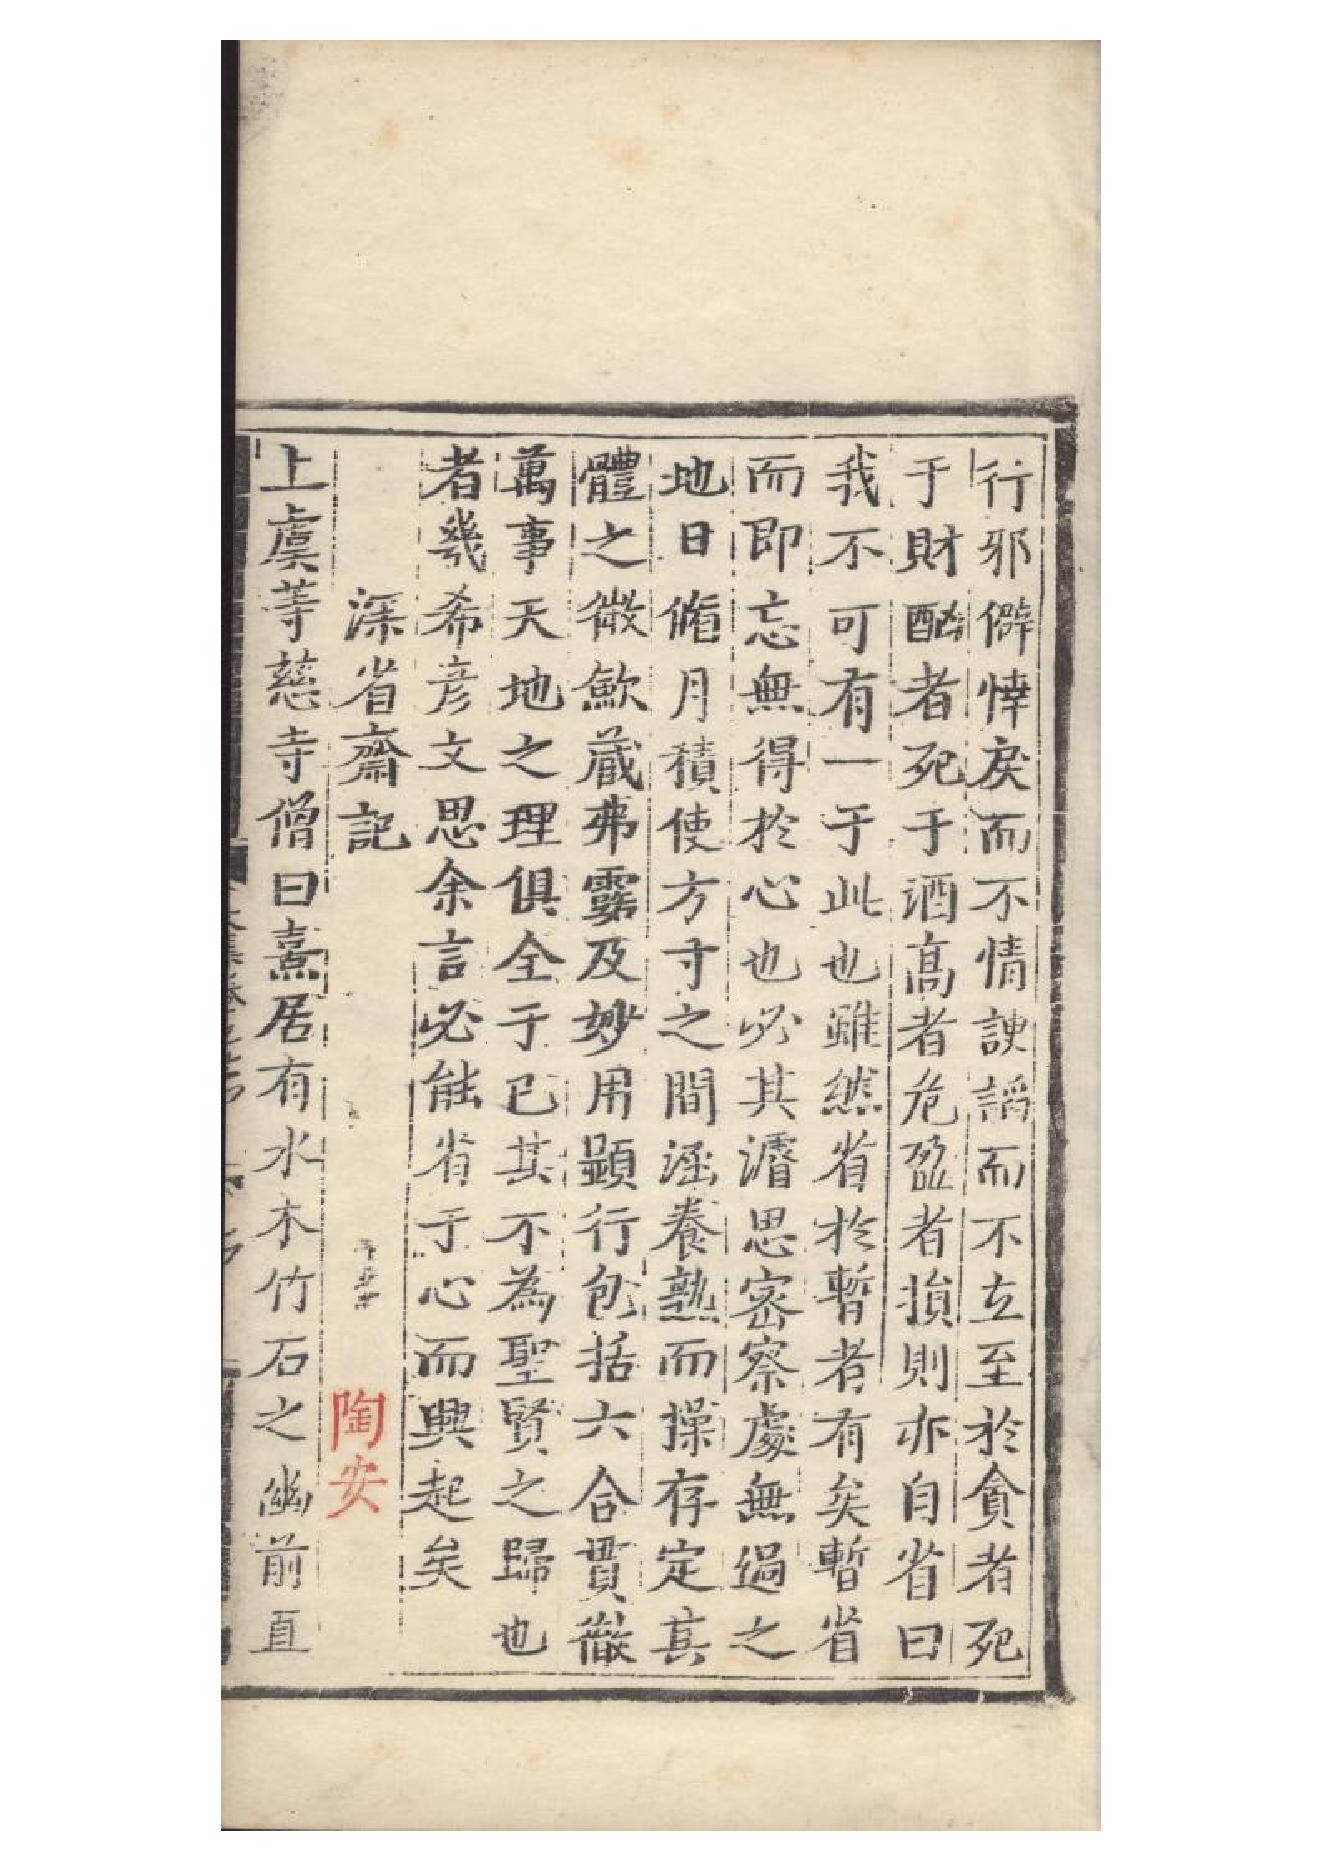 行邪僻悻戾而不情諛謟而不立至於貪者死
于財酗者死于酒高者危盈者損則亦自省曰
我不可有一于此也雖然省於暫者有矣暫省
而即忘無得於心也必其潛思密察處無過之
地日脩月積使方寸之間涵養熟而操存定其
體之微歛藏弗露及妙用顯行包括六合貫徹
萬事天地之理俱全于已其不為聖賢之歸也
者幾希彥文思余言必能省于心而興起矣
深省齋記
陶安
上虞等慈寺僧曰熹居有水木竹石之幽前直